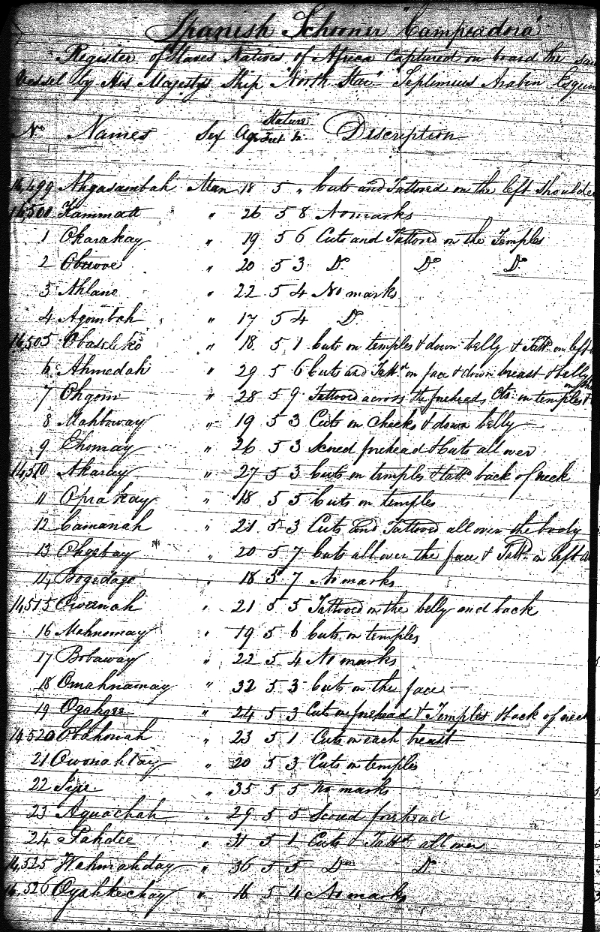 Spanish Schooner "Campeadora"
Register of Slaves Natives of Africa Captured on board the said
Vessel by His Majestys Ship "North Star" Septimius Arabin Esquire
No Names Sex Age Stature Feet In Description
Ahgasambah Man 18 5 " Cuts and Tattooed on the left Shoulder
Kammatt " 26 5 8 No marks
1 Okarakay " 19 5 6 Cuts and Tattood on the Temples
2 " 20 5 3 Do Do Do
3 Ahlane " 22 5 4 No marks
4 Agombah " 17 5 4 Do
16,505 " 18 5 1 Cuts on temples & down belly & Tattd on left
6 Ahmedah " 29 5 6 Cuts and Tattd on face & down breast & belly
7 " 28 5 9 Tattood across the foreheads on temples
8 Mahboway " 19 5 3 Cuts on Cheeks & down belly
9 Ehomay " 26 5 3 Scored forehead & Cuts all over
Akardey " 27 5 3 Cuts on temples & tattd back of neck
11 Oprakay " 18 5 5 Cuts on temples
12 Camanah " 21 5 3 Cuts and Tattood all over the body
13 " 20 5 7 Cuts all over the face & Tattd on left
14 Bogedago " 18 5 7 No marks
14,515 " 21 5 5 Tattood on the belly and back
16 Mahnomay " 19 5 6 Cuts on temples
17 Bobaway " 22 5 4 No marks
18 Omahnamay " 32 5 3 Cuts on the face
19 " 24 5 3 Cuts on forehead & Temples & back of neck
14,520 " 23 5 1 Cuts on each breast
21 Owonahbay " 20 5 3 Cuts on temples
22 " 35 5 5 No marks
23 Aquachah " 29 5 5 Scored forehead
24 Fahdee " 31 5 1 Cuts & Tattd all over
Wahmahday " 36 5 5 Do Do
Oyahkechay " 16 5 4 No marks